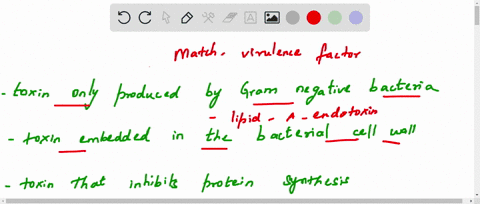 Match - virulence factor
- toxin only produced by Gram negative bacteria
- lipid - A - endotoxin
- toxin embedded in the bacterial cell wall
- toxin that inhibits protein synthesis